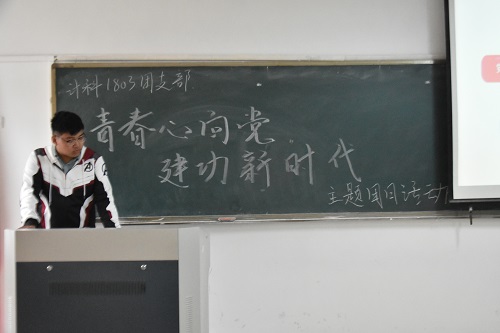 计科1803团支部
青春心向党
建功新时代
主题团日活动